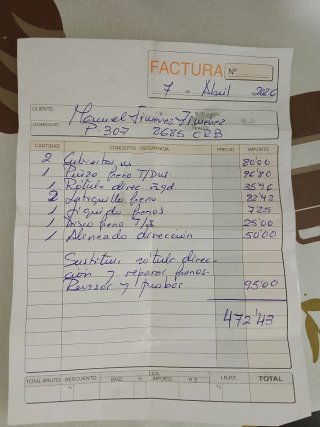 FACTURA Nº
7 de Abril de 2026
CLIENTE: Manuel Jimenez Jimenez
DOMICILIO: P-307 8685 CRB
CANTIDAD CONCEPTO - REFERENCIA PRECIO IMPORTE
2 Cubiertas 80'00
1 Pinza freno T/Dus. 96'80
1 Rotula direc. Izqd 35'96
2 Latiguillo freno 82'42
1 Liquido frenos 7'25
1 Disco freno 25'00
1 Alineado dirección 50'00
Sustituir rotula direc-
ción y reparar frenos.
Revisar y probar 95'00
472'43
TOTAL BRUTO DESCUENTO I.V.A. BASE % IMPORTE R.E. I.R.P.F. TOTAL
% %